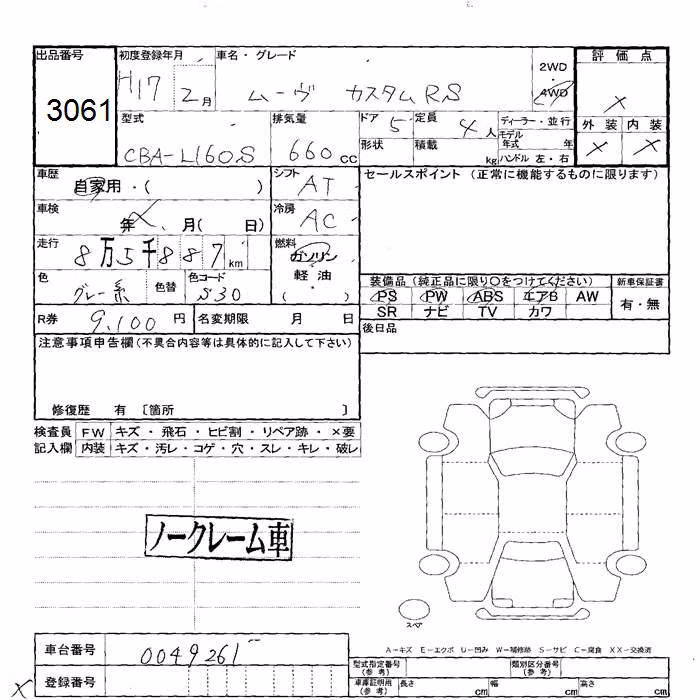 出品番号 初度登録年月 車名・グレード 2WD・4WD 評価点
3061 H17 2月 ムーヴ カスタムRS ×
型式 排気量 ドア 5 定員 4人 ディーラー・並行 外装 内装
CBA-L160S 660cc 形状 積載 kg モデル年式 年 ハンドル 左・右 × ×
車歴 自家用・( ) シフト AT セールスポイント (正常に機能するものに限ります)
車検 年 月( 日) 冷房 AC
走行 8万5千887km 燃料 ガソリン
軽油
( )
色 グレー系 色替 色コード S30
装備品 (純正品に限り○をつけてください) 新車保証書
PS PW ABS エアB AW 有・無
SR ナビ TV カワ
R券 9,100円 名変期限 月 日 後日品
注意事項申告欄(不具合内容等は具体的に記入して下さい)
修復歴 有 〔箇所 〕
検査員 FW キズ・飛石・ヒビ割・リペア跡・×要
記入欄 内装 キズ・汚レ・コゲ・穴・スレ・キレ・破レ
ノークレーム車
スペア
A-キズ E-エクボ U-凹み W-補修跡 S-サビ C-腐食 XX-交換済
車台番号 0049261
登録番号
×
型式指定番号(参考) 類別区分番号(参考)
車庫証明用(参考) 長さ cm 幅 cm 高さ cm